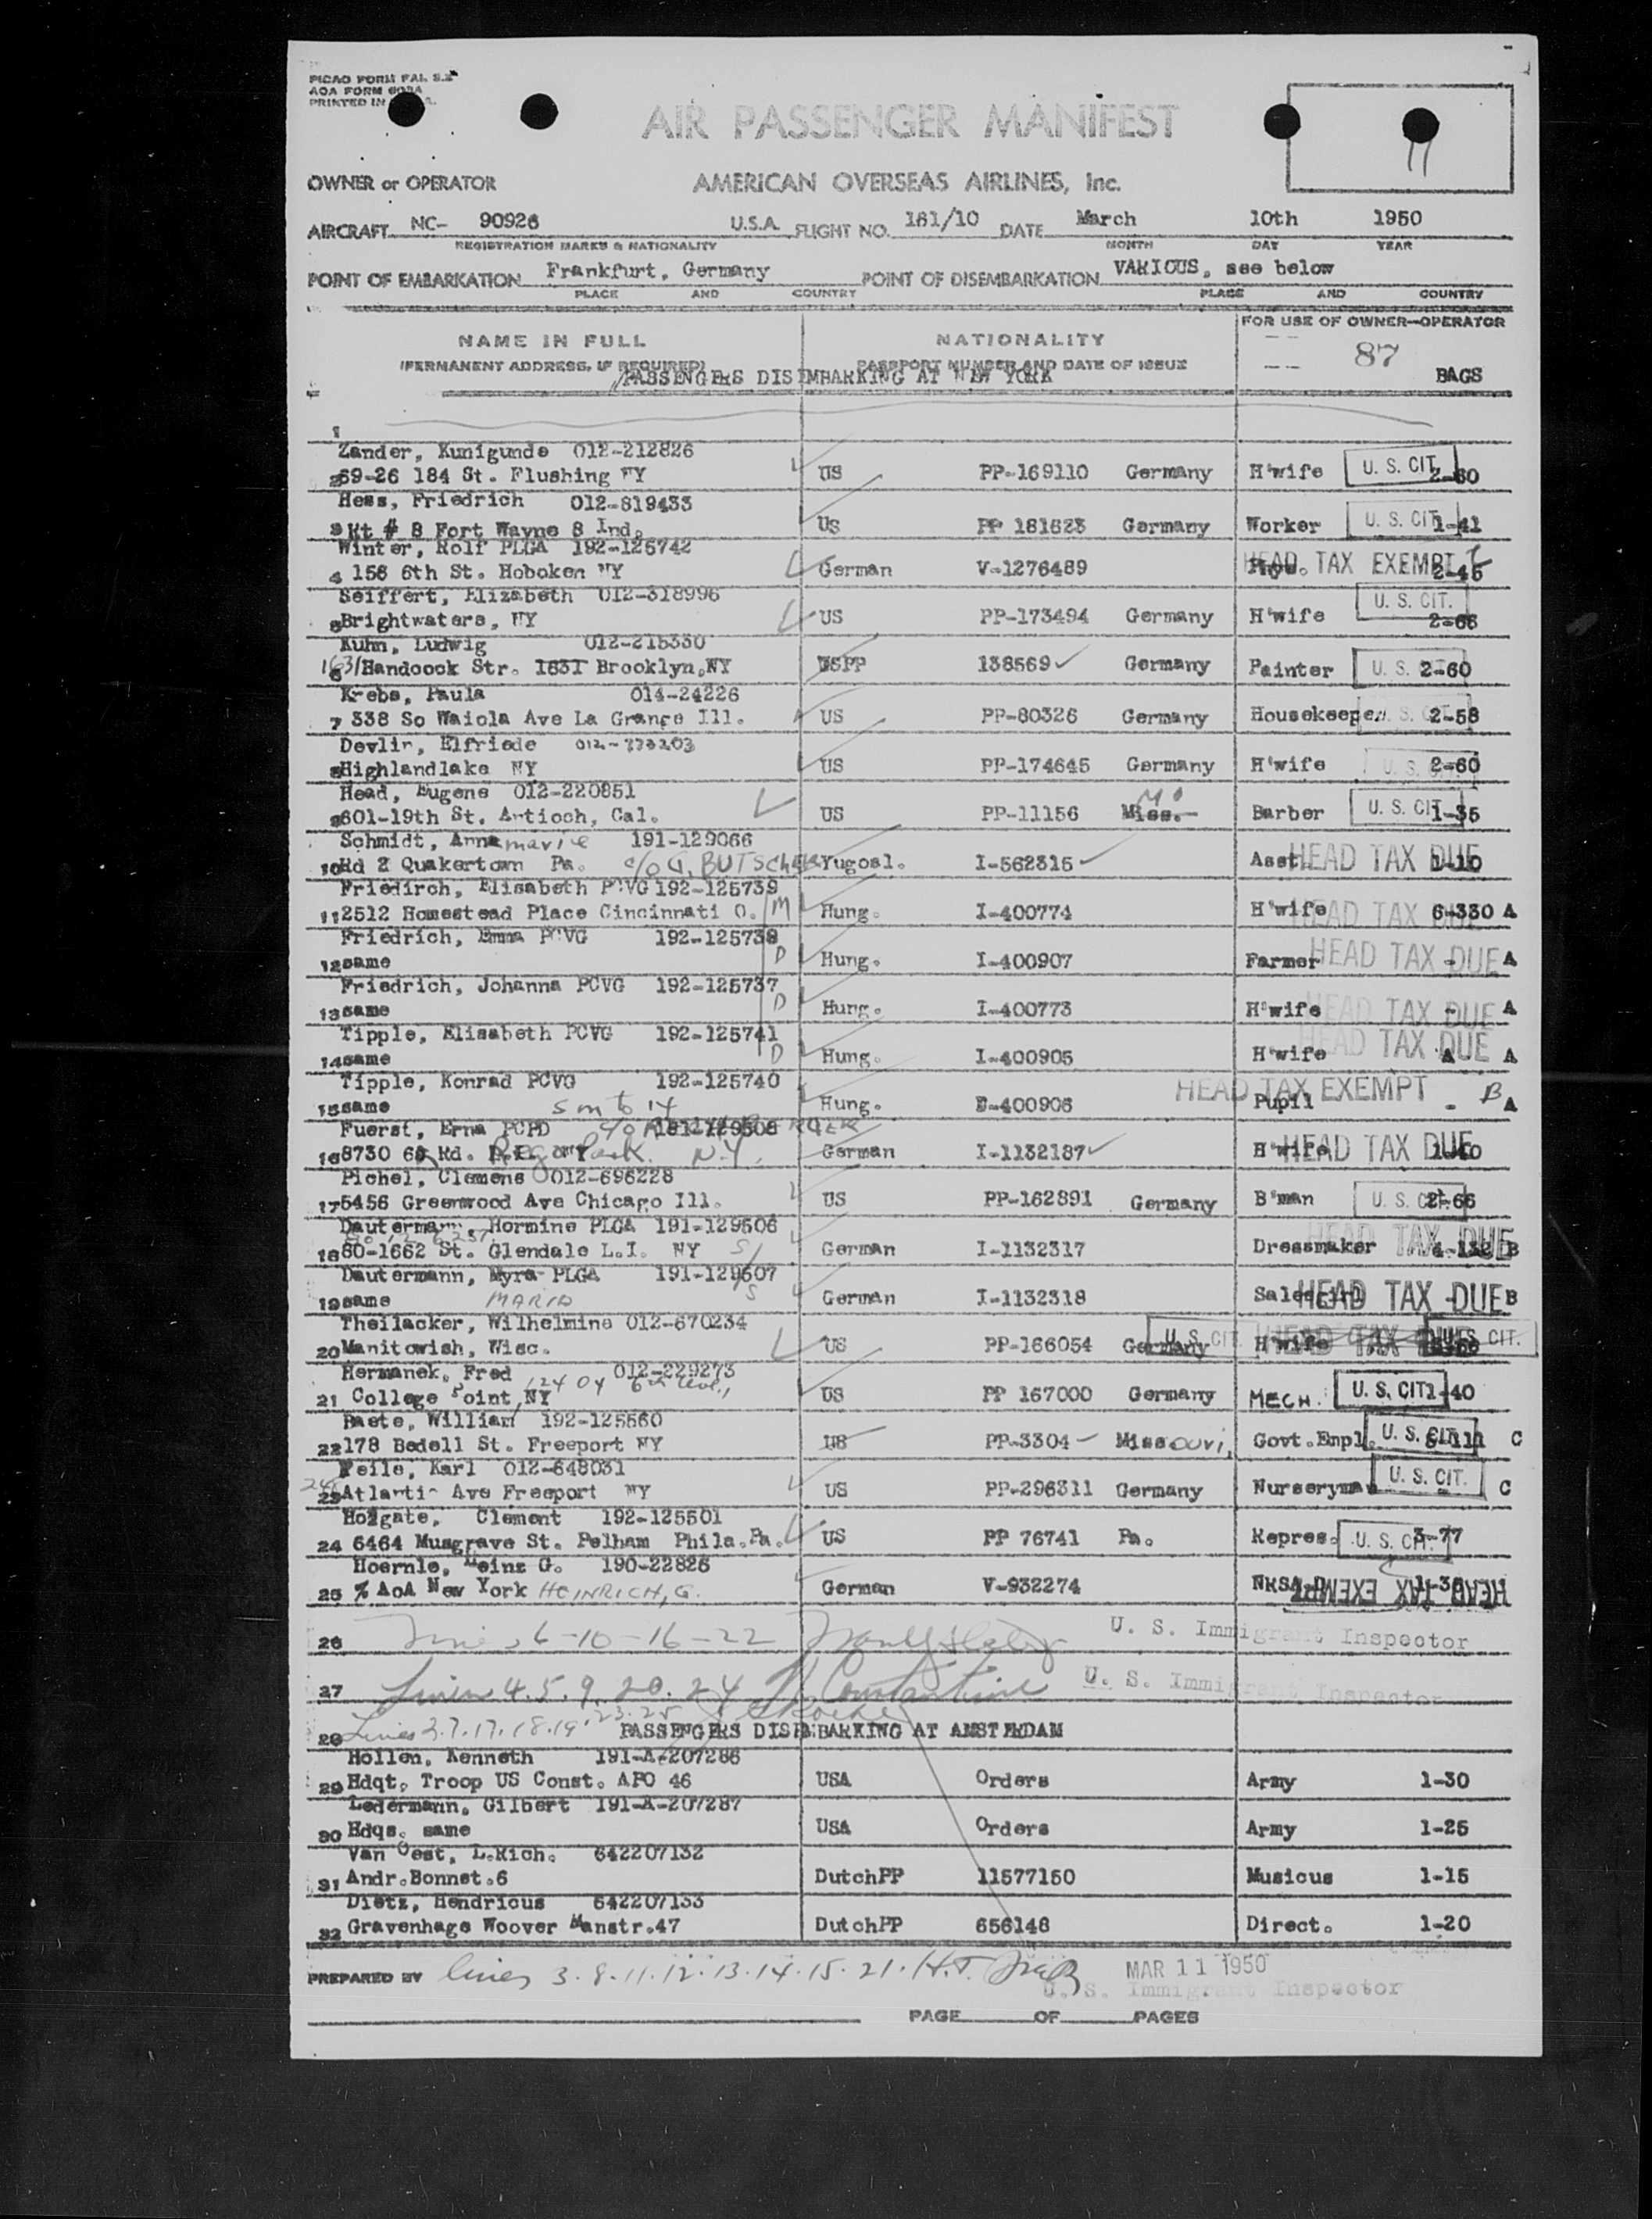 PICAO FORM FAL S.2
AOA FORM
PRINTED IN
AIR PASSENGER MANIFEST
11
OWNER or OPERATOR AMERICAN OVERSEAS AIRLINES, Inc.
AIRCRAFT NC- 90926 U.S.A. FLIGHT NO. 181/10 DATE March 10th 1950
REGISTRATION MARKS & NATIONALITY MONTH DAY YEAR
POINT OF EMBARKATION Frankfurt, Germany POINT OF DISEMBARKATION VARIOUS, see below
PLACE AND COUNTRY PLACE AND COUNTRY
NAME IN FULL NATIONALITY FOR USE OF OWNER-OPERATOR
(PERMANENT ADDRESS, IF REQUIRED) PASSPORT NUMBER AND DATE OF ISSUE 87
PASSENGERS DISEMBARKING AT NEW YORK BAGS
1
Zander, Kunigunde 012-212826
2 69-26 184 St. Flushing NY US PP-169110 Germany H'wife U. S. CIT. 2-60
Hess, Friedrich 012-819433
3 Rt # 8 Fort Wayne 8 Ind. US PP 181623 Germany Worker U. S. CIT 1-41
Winter, Rolf PLGA 192-125742
4 156 6th St. Hoboken NY German V-1276489 HEAD TAX EXEMPT 2-45
Seiffert, Elizabeth 012-318996
5 Brightwaters, NY US PP-173494 Germany H'wife U. S. CIT. 2-66
Kuhn, Ludwig 012-215330
6 1631 Handcock Str. 1631 Brooklyn,NY USPP 138569 Germany Painter U. S. 2-60
Krebs, Paula 014-24226
7 338 So Waiola Ave La Grange Ill. US PP-80326 Germany Housekeeper U. S. CIT. 2-58
Devlin, Elfriede 012-
8 Highlandlake NY US PP-174645 Germany H'wife U. S. 2-60
Head, Eugene 012-220851
9 601-19th St. Antioch, Cal. US PP-11156 Miss. Mo Barber U. S. CIT 1-35
Schmidt, Annamarie 191-129066
10 Rd 2 Quakertown Pa. c/o J. BUTSCHER Yugosl. I-562315 Asst. HEAD TAX DUE 1-10
Friedirch, Elisabeth PCVG 192-125739
11 2512 Homestead Place Cincinnati O. M Hung. I-400774 H'wife HEAD TAX DUE 6-330 A
Friedrich, Emma PCVG 192-125738
12 same D Hung. I-400907 Farmer HEAD TAX DUE - A
Friedrich, Johanna PCVG 192-125737
13 same D Hung. I-400773 H'wife HEAD TAX DUE - A
Tipple, Elisabeth PCVG 192-125741
14 same D Hung. I-400905 H'wife HEAD TAX DUE A
Tipple, Konrad PCVG 192-125740
15 same Hung. I-400906 Pupil HEAD TAX EXEMPT - B A
Fuerst, Erna PCPD
16 8730 Rd. Rego Park. N.Y. German I-1132187 H'wife HEAD TAX DUE 1-40
Pichel, Clemens 012-696228
17 5456 Greenwood Ave Chicago Ill. US PP-162891 Germany B'man U. S. CIT. 2-66
Dautermann, Hermine PLGA 191-129506
18 80-1662 St. Glendale L.I. NY German I-1132317 Dressmaker HEAD TAX DUE 4-132 B
Dautermann, Myra PLGA 191-129507
19 same MARIA German I-1132318 Salesgirl HEAD TAX DUE B
Theilacker, Wilhelmine 012-670234
20 Manitowish, Wisc. US PP-166054 Germany U. S. CIT. H'wife HEAD TAX DUE U. S. CIT.
Hermanek, Fred 012-229273
21 College Point,NY US PP 167000 Germany MECH. U. S. CIT 1-40
Baete, William 192-125560
22 178 Bedell St. Freeport NY US PP-3304 Missouri, Govt.Empl. U. S. CIT. C
Feile, Karl 012-648031
23 Atlantic Ave Freeport NY US PP-296311 Germany Nurseryman U. S. CIT. C
Holgate, Clement 192-125501
24 6464 Musgrave St. Pelham Phila.Pa. US PP 76741 Pa. Repres. U. S. CIT. 3-77
Hoernle, Heinz G. 190-22826
25 % AoA New York HEINRICH, G. German V-932274 HEAD TAX EXEMPT
26 Lines 6-10-16-22 U. S. Immigrant Inspector
27 Lines 4.5.9.20.24 Constantine U. S. Immigrant Inspector
28 Lines 2.7.17.18.19.23.25 PASSENGERS DISEMBARKING AT AMSTERDAM
Hollen, Kenneth 191-A-207286
29 Hdqt. Troop US Const. APO 46 USA Orders Army 1-30
Ledermann, Gilbert 191-A-207287
30 Hdqs. same USA Orders Army 1-25
Van Oest, L.Rich. 642207132
31 Andr.Bonnet.6 DutchPP 11577150 Musicus 1-15
Dietz, Hendricus 642207133
32 Gravenhage Woover Manstr.47 DutchPP 656148 Direct. 1-20
PREPARED BY lines 3.8.11.12.13.14.15.21. H.T. MAR 11 1950
U. S. Immigrant Inspector
PAGE OF PAGES